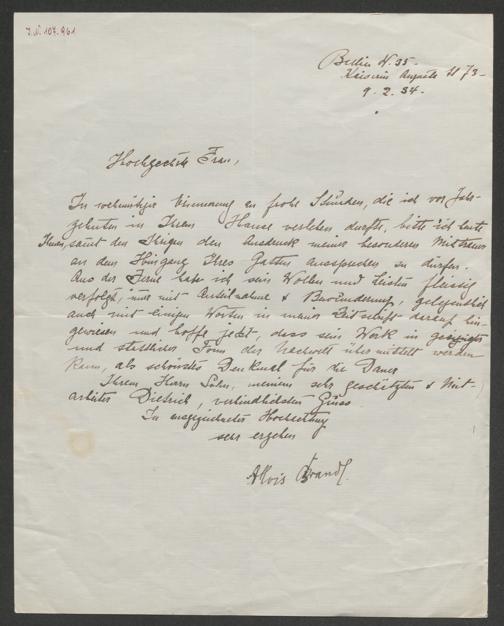 J.N. 107.961
Berlin W. 35.
Kaiserin Augusta 73
9. 2. 34.
Hochgeehrte Frau,
In wehmütiger Erinnerung an frohe Stunden, die ich vor Jahr-
zehnten in Ihrem Hause verleben durfte, bitte ich heute
Ihnen, samt den Ihrigen den Ausdruck meines besonderen Mitgefühls
an dem Hingang Ihres Gatten aussprechen zu dürfen.
Aus der Ferne habe ich sein Wollen und Leisten fleissig
verfolgt, immer mit Anteilnahme & Bewunderung, gelegentlich
auch mit einigen Worten in meiner Zeitschrift darauf hin-
gewiesen und hoffe jetzt, dass sein Werk in
und stattlicher Form der Nachwelt übermittelt werden
kann, als schönstes Denkmal für die Dauer.
Ihrem Herrn Sohn, meinem sehr geschätzten Mit-
arbeiter Dietrich, verbindlichsten Gruss
In ausgezeichneter Hochachtung
sehr ergeben
Alois Brandl.